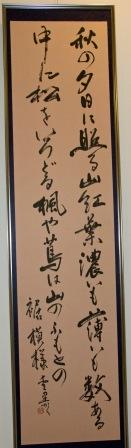 秋の夕日に照る山紅葉濃いも薄いも数ある
中に松をいろどる楓や蔦は山のふもとの
裾模様